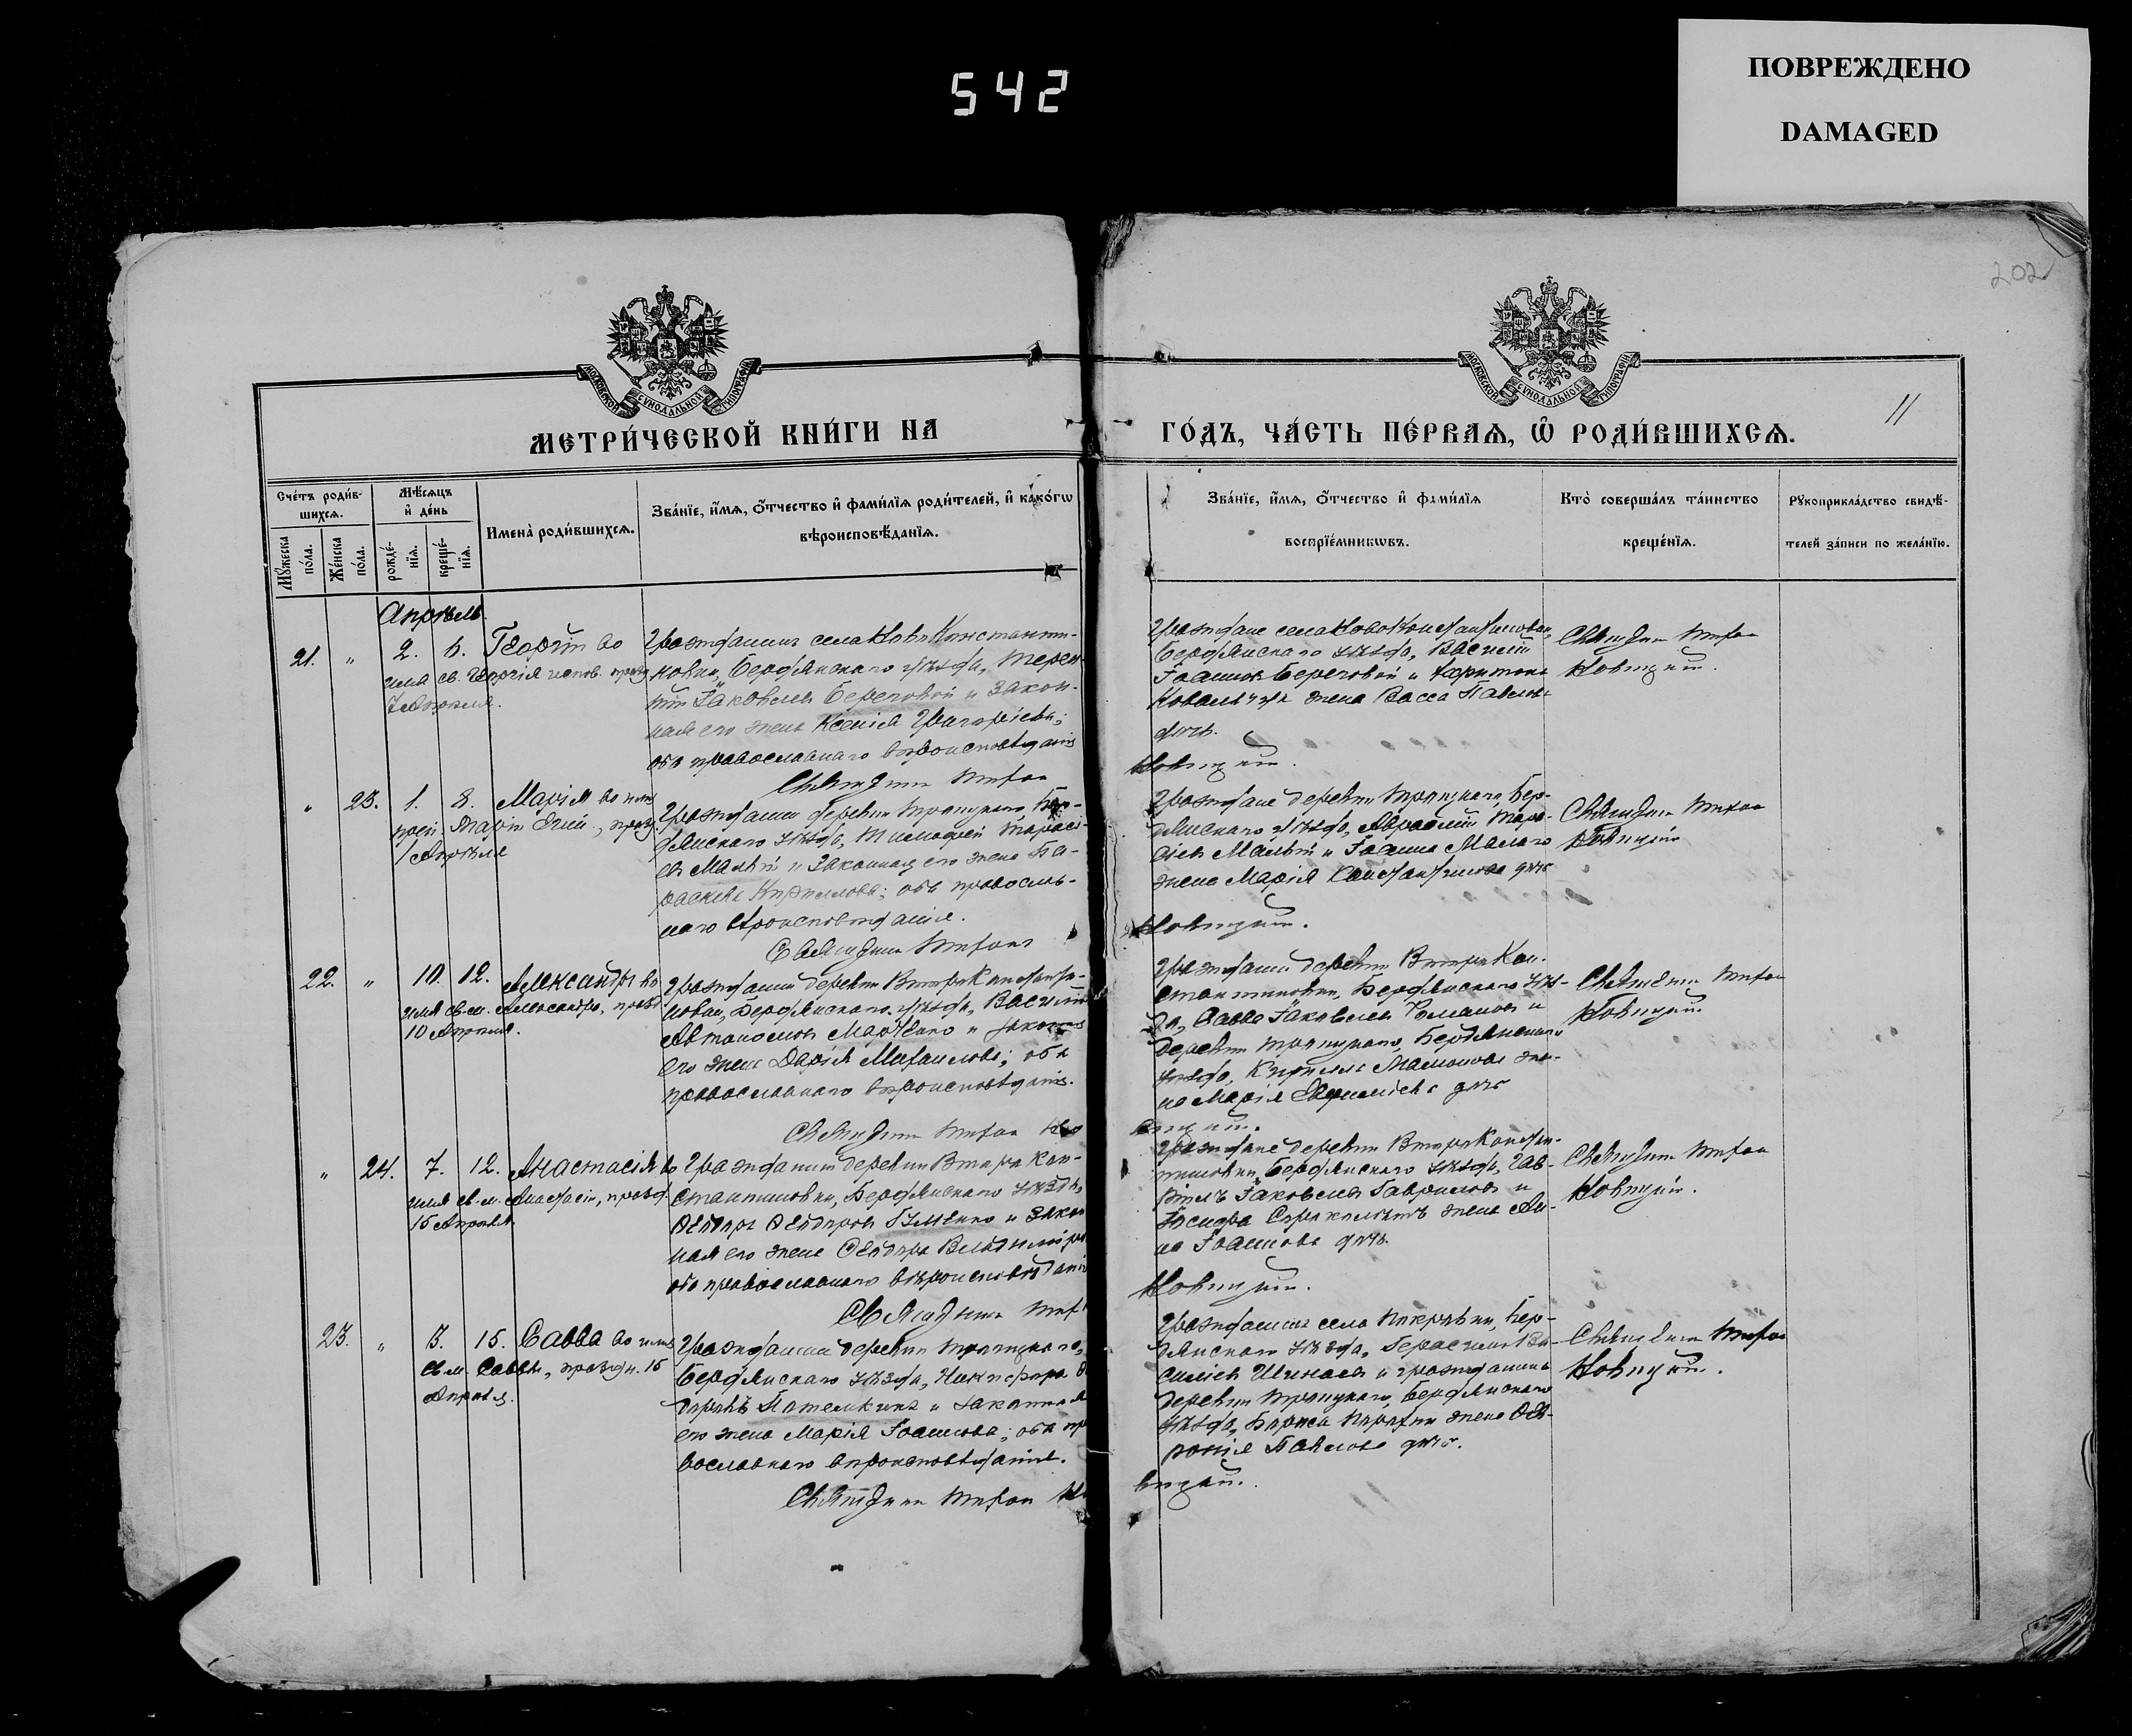 542
ПОВРЕЖДЕНО
DAMAGED
202
МОСКОВСКОЙ СѴНОДАЛЬНОЙ ТИПОГРАФІИ
МОСКОВСКОЙ СѴНОДАЛЬНОЙ ТИПОГРАФІИ
11
МЕТРИ́ЧЕСКОЙ КНИ́ГИ НА
ГО́ДЪ, ЧА́СТЬ ПЕ́РВАЯ, Ѡ҆ РОДИ́ВШИХСЯ.
Сче́тъ роди́в-
шихся.
Мꙋ́жеска
по́ла.
Же́нска
по́ла.
Мѣ́сяцъ
и҆ де́нь
рожде́-
нїя.
креще́-
нїя.
Имена̀ роди́вшихся.
Зва́нїе, и҆́мя, ѻ҆́тчество и҆ фами́лїя роди́телей, и҆ како́гѡ
вѣроисповѣ́данїя.
Зва́нїе, и҆́мя, ѻ҆́тчество и҆ фами́лїя
воспрїе́мникѡвъ.
Кто̀ соверша́лъ та́инство
креще́нїя.
Рꙋкоприкла́дство свидѣ́-
телей за́писи по жела́нїю.
Апрѣль.
21. " 2. 6. Георгій во
имя св. Георгія испов. празд
7 Апреля.
Гражданинъ села Ново Константи-
новки, Бердянскаго уѣзда, Терен-
тій Іаковлевъ Береговой и закон-
ная его жена Ксенія Григоріева;
оба православнаго вероисповѣданія
Священникъ Тихон
Граждане села Ново Константиновки,
Бердянскаго уѣзда, Василій
Іоанновъ Береговой и Харитона
жена Васса Павлова
дочь.
Новицкій.
Священник Тихон
Новицкій.
" 23. 1. 8. Марія во имя
преп. Маріи Егип., празд.
1 Апрѣля
Гражданин деревни Троицкаго, Бер-
дянскаго уѣзда, Тимофей Тарасі-
евъ Малый и законная его жена Па-
раскева Кириллова; оба православ-
наго вѣроисповѣданія.
Священник Тихонъ
Граждане деревни Троицкаго, Бер-
дянскаго уѣзда, Авраамій Тара-
сіевъ Малый и Іоанна Малаго
жена Марія Константинова дочь
Новицкій.
Священник Тихон
Новицкій
22. " 10. 12. Александръ во
имя св. м. Александра, празд
10 Апреля.
Гражданин деревни Второ Константи-
новки, Бердянскаго уѣзда, Василій
Автономовъ Марченко и законная
его жена Дарія Михаилова; оба
православнаго вероисповѣданія.
Священник Тихон Но
Граждани деревни Второ Кон-
стантиновки, Бердянскаго уѣз-
да, Савва Іаковлевъ Романовъ и
деревни Троицкаго, Бердянскаго
уѣзда, Кирилла Мамонова же-
на Марія дочь
вицкій.
Священник Тихон
Новицкій.
" 24. 7. 12. Анастасія во
имя св. м. Анастасіи, празд.
15 Апреля.
Гражданин деревни Второ Кон-
стантиновки, Бердянскаго уѣзда,
Ѳеодоръ Ѳеодоровъ и закон
ная его жена Ѳеодора
оба православнаго вѣроисповѣданія
Священникъ Тих
Граждане деревни Второ Констан-
тиновки, Бердянскаго уѣзда, Гав-
ріилъ Іаковлевъ Гавриловъ и
Іосифа жена Ан-
на Іоаннова дочь.
Новицкій.
Священник Тихон
Новицкій.
23. " 5. 15. Савва во имя
св. м. Саввы, праздн. 15
Апреля.
Гражданин деревни Троицкаго,
Бердянскаго уѣзда, Никифоръ Ѳ
доровъ Потемкинъ и законная
его жена Марія Іоаннова; оба пра
вославнаго вероисповѣданія.
Священник Тихон Но
Гражданинъ села Покровки, Бер-
дянскаго уѣзда, Герасимъ Ва-
силіевъ и гражданина
деревни Троицкаго, Бердянскаго
уѣзда, Бориса жена Ѳев-
ронія Павлова дочь.
вицкій.
Священник Тихон
Новицкій.